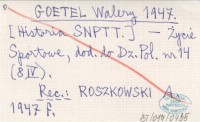 GOETEL Walery 1947.
[Historia SNPTT.] — Życie
Sportowe, dod. do Dz. Pol. nr 14
(8 IV).
Rec.: ROSZKOWSKI A.
1947 f.